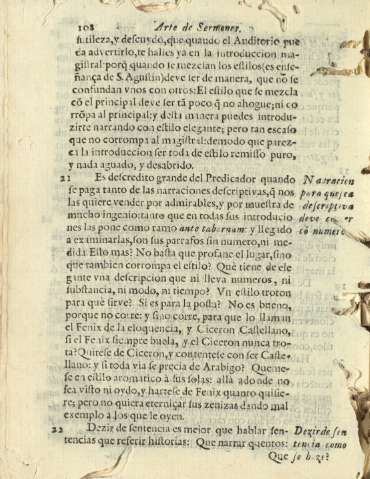 108 Arte de Sermones.
sutileza, y descuydo, que quando el Auditorio pue
da advertirlo, te halles ya en la introduccion ma-
gistral: porq̃ quando te mezclan los estilos (es ense-
ñança de S. Agustin) deve ser de manera, que no se
confundan vnos con otros: El estilo que se mezcla
cõ el principal deve ser tã poco q̃ no ahogue; ni co
rrõpa al principal; y desta manera puedes introdu-
zirte narrando con estilo elegante; pero tan escaso
que no corrompa al magistral: demodo que parez-
ca la introduccion ser toda de estilo remisso puro,
y nada aguado, y desabrido.
21 Es descredito grande del Predicador quando
se paga tanto de las narraciones descriptivas, q̃ nos
las quiere vender por admirables, y por muestra de
mucho ingenio: tanto que en todas sus introducio
nes las pone como ramo ante tabernam: y llegado
a examinarlas, son sus parrafos sin numero, ni me-
dida Esto mas? No basta que profane el lugar, sino
que tambien corrompa el estilo? Què tiene de ele
gante vna descripcion que ni lleva numeros, ni
substancia, ni modo, ni tiempo? Vn estilo troton
para què sirve? Si es para la posta? No es bueno,
porque no corre: y sino corre, para que lo llaman
el Fenix de la eloquencia, y Ciceron Castellano,
si el Fenix siempre buela, y el Ciceron nunca tro-
ta? Quitese de Ciceron, y contentese con ser Caste-
llano: y si toda via se precia de Arabigo? Queme-
se en estilo aromatico à sus solas: allà adonde no
sea visto ni oydo, y hartese de Fenix quanto quisie-
re; pero no quiera eterniçar sus zenizas dando mal
exemplo à los que le oyen.
22 Dezir de sentencia es mejor que hablar sen-
tencias que referir historias: Que narrar quentos:
Que
Narracion
para que sea
descriptiva
deve
cõ numero
Dezir de sen
tencia como
se